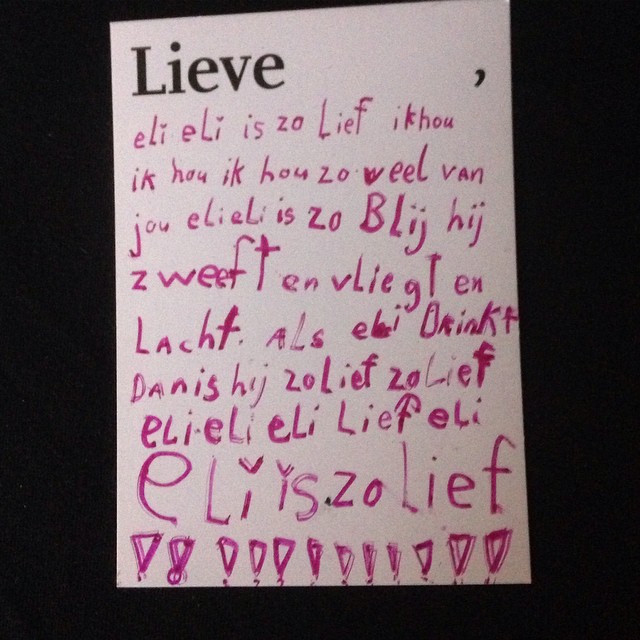 Lieve ,
eli eli is zo Lief ik hou
ik hou ik hou zo weel van
jou eli eli is zo Blij hij
zweeft en vliegt en
Lacht. ALs eli Drinkt
DAn is hij zo lief zo Lief
eLi eLi eLi Lief eLi
eLi is zo lief
!!!!!!!!!!!!